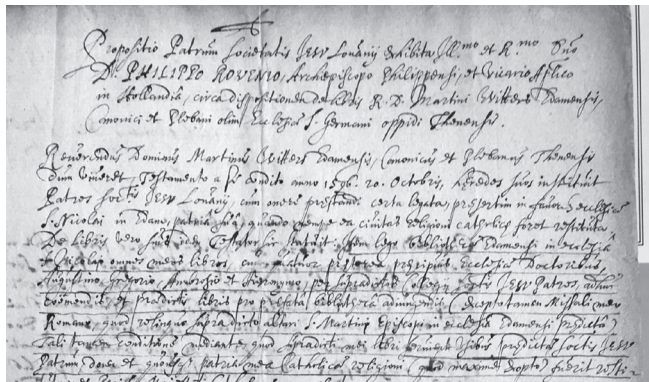 Propositio Patrum Societatis Jesu Lovanij exhibita Ill.mo et R.mo Dno
D. PHILIPPO ROVENIO, Archiepiscopo Philippensi, et Vicario Apllico
in Hollandia, circa dispositionem de libris R. D. Martini Witters Edamensis,
Canonici et Plebani olim Ecclesiae S. Germani oppidi Thenensis.
Reverendus Dominus Martinus Witters Edamensis, Canonicus et Plebanus Thenensis
dum viveret, testamento a se condito anno 1596. 20. Octobris, heredes suos instituit
Patres Soctis Jesu Lovanij, cum onere praestandi certa legata, praesertim in favorem ecclesiae
S. Nicolai in Edam, patria sua, quando nempe ea civitas religioni catholicae foret restituta.
De libris vero suis idem Testator sic statuit: Item lego bibliothecae Edamensi in ecclesia
S. Nicolai omnes meos libros, cum quatuor praecipuis Ecclesiae Doctoribus,
Augustino, Gregorio, Ambrosio et Hieronymo, per supradictos Soctis Jesu Patres,
emendis et praedictis libris pro perfecta bibliotheca adiungendis (excepto tamen Missali meo
Romano, quod relinquo supradicto altari S. Martini Episcopi in ecclesia Edamensi praedicta)
tali tamen conditione mediante, quod praedicti mei libri praedictis Soctis Jesu
Patrum donec et patria mea Catholicae religioni (quod maxime exopto) fuerit resti-